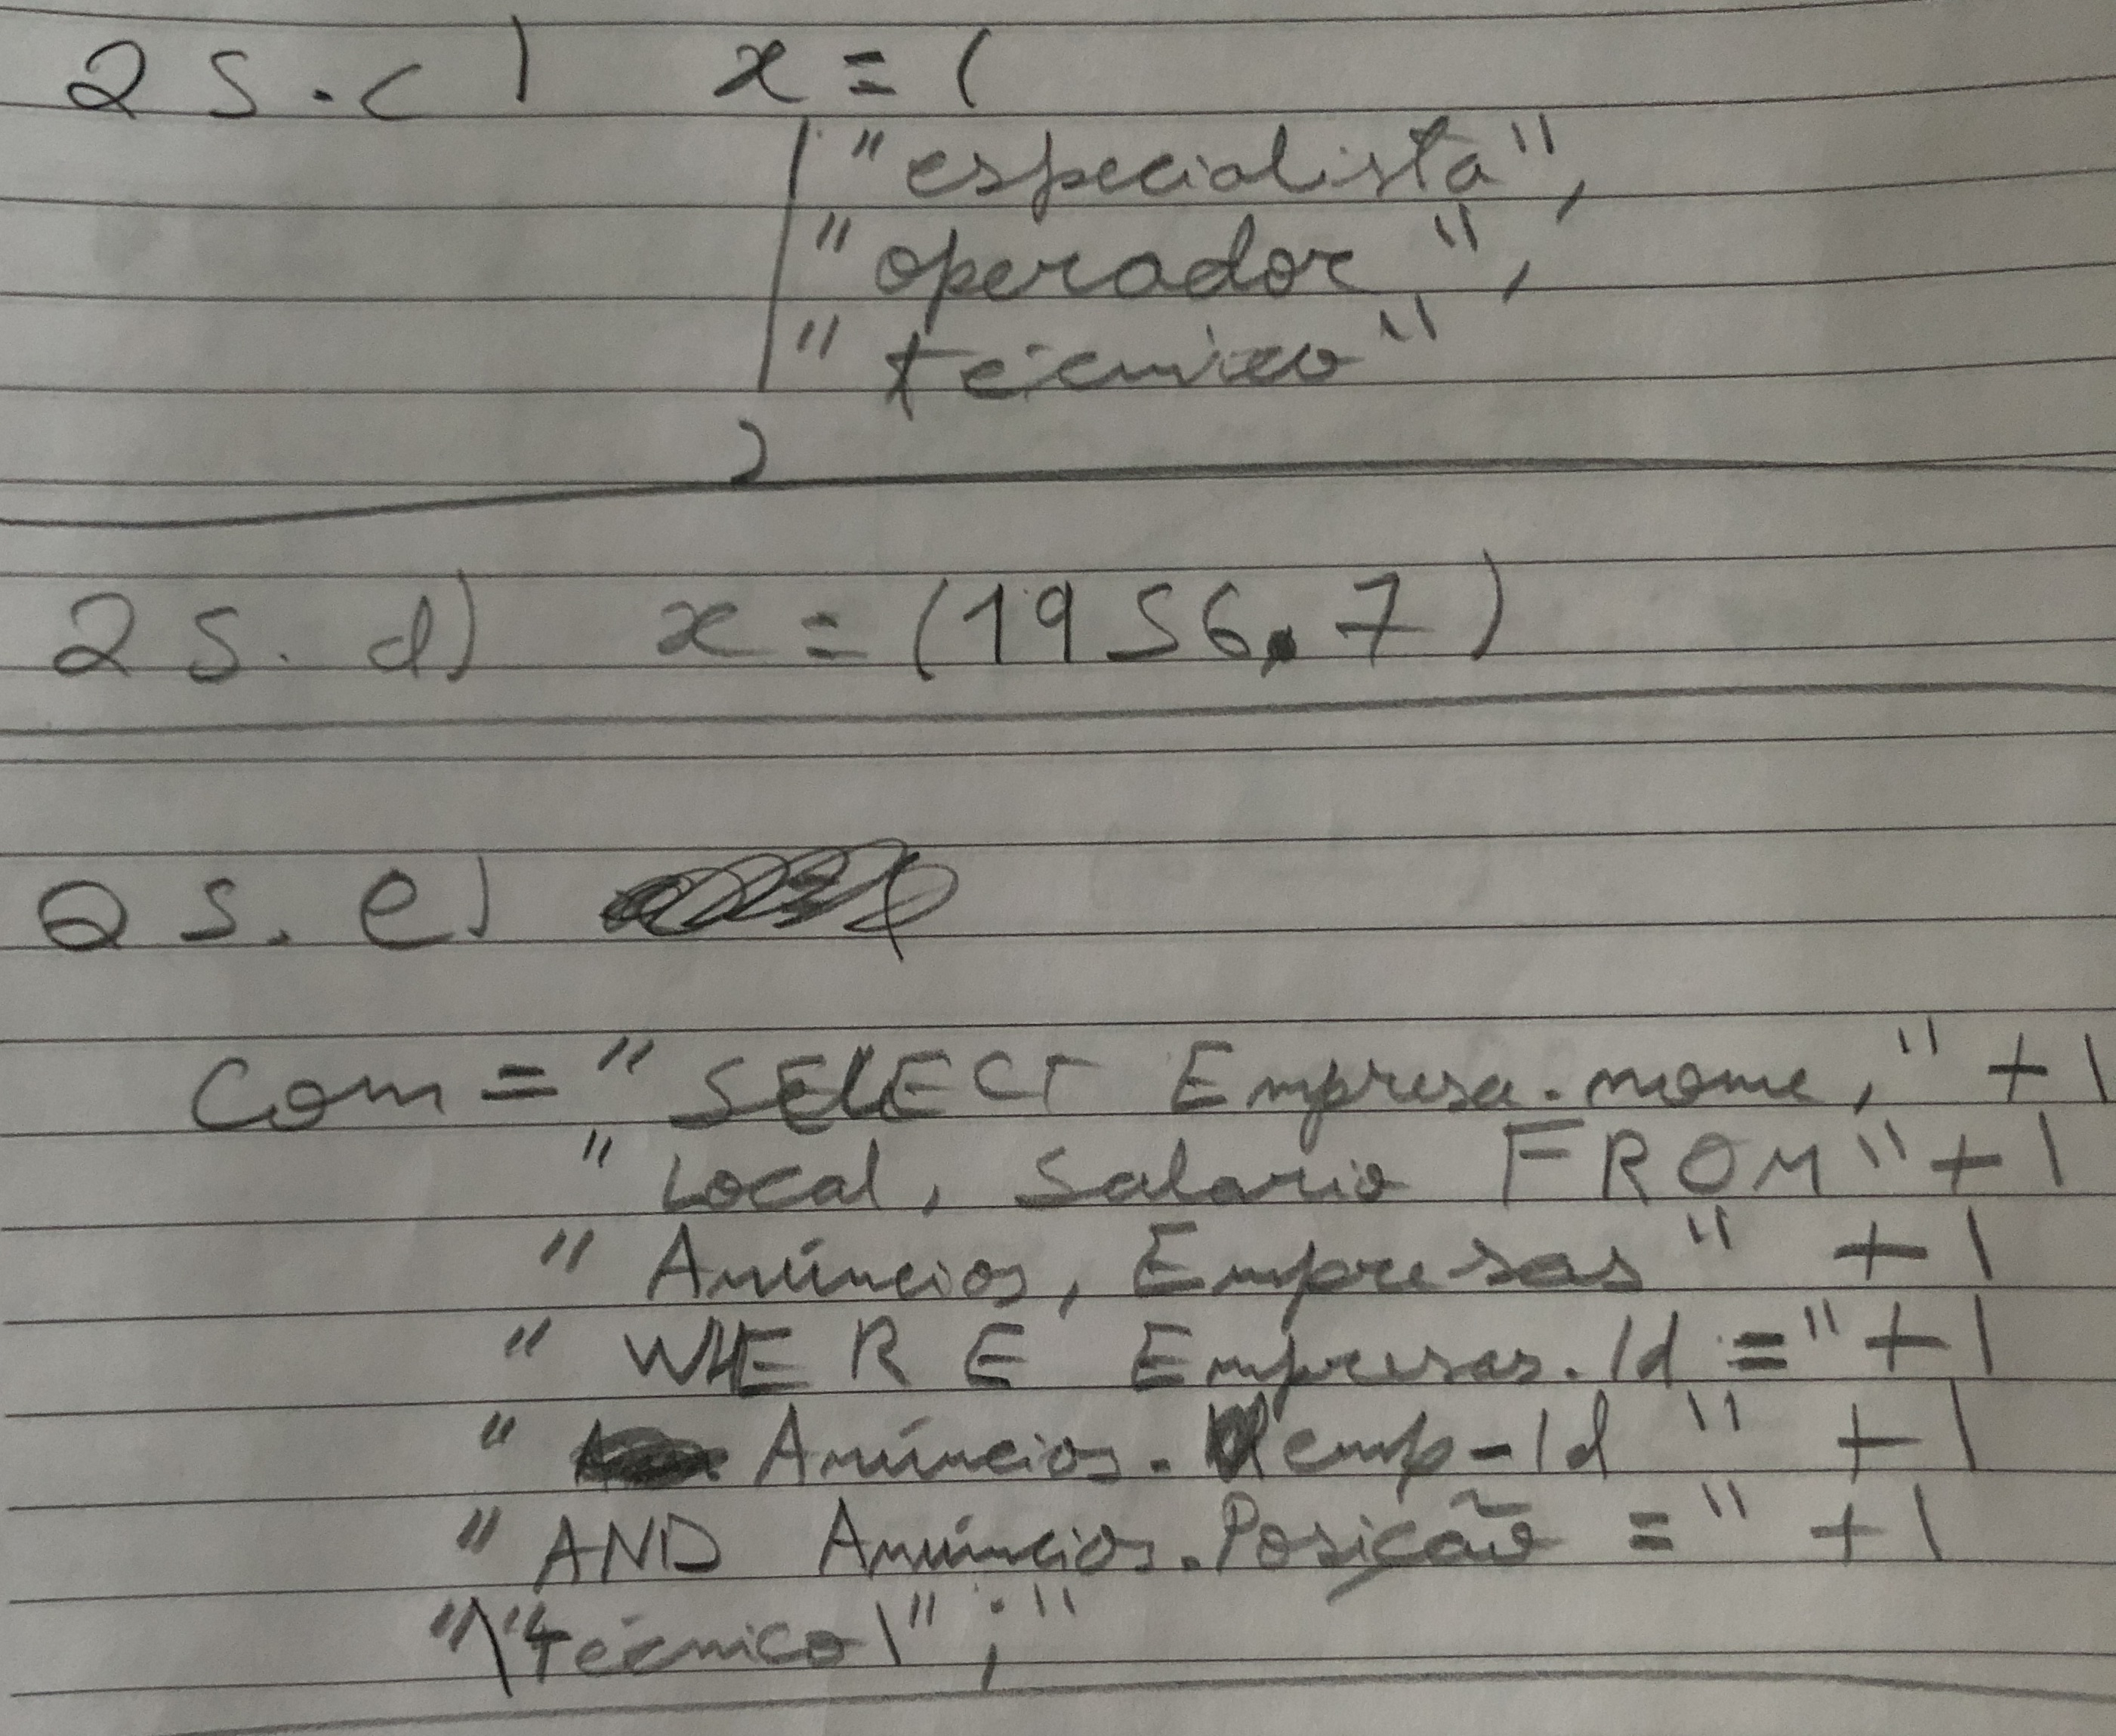 25.c) x = (
"especialista",
"operador",
"técnico"
)
25.d) x = (1956.7)
25.e)
Com = "SELECT Empresa.nome," + \
"Local, Salario FROM" + \
"Anúncios, Empresas" + \
"WHERE Empresas.Id =" + \
"Anúncios.emp-Id" + \
"AND Anúncios.Posição =" + \
"\"técnico\";"